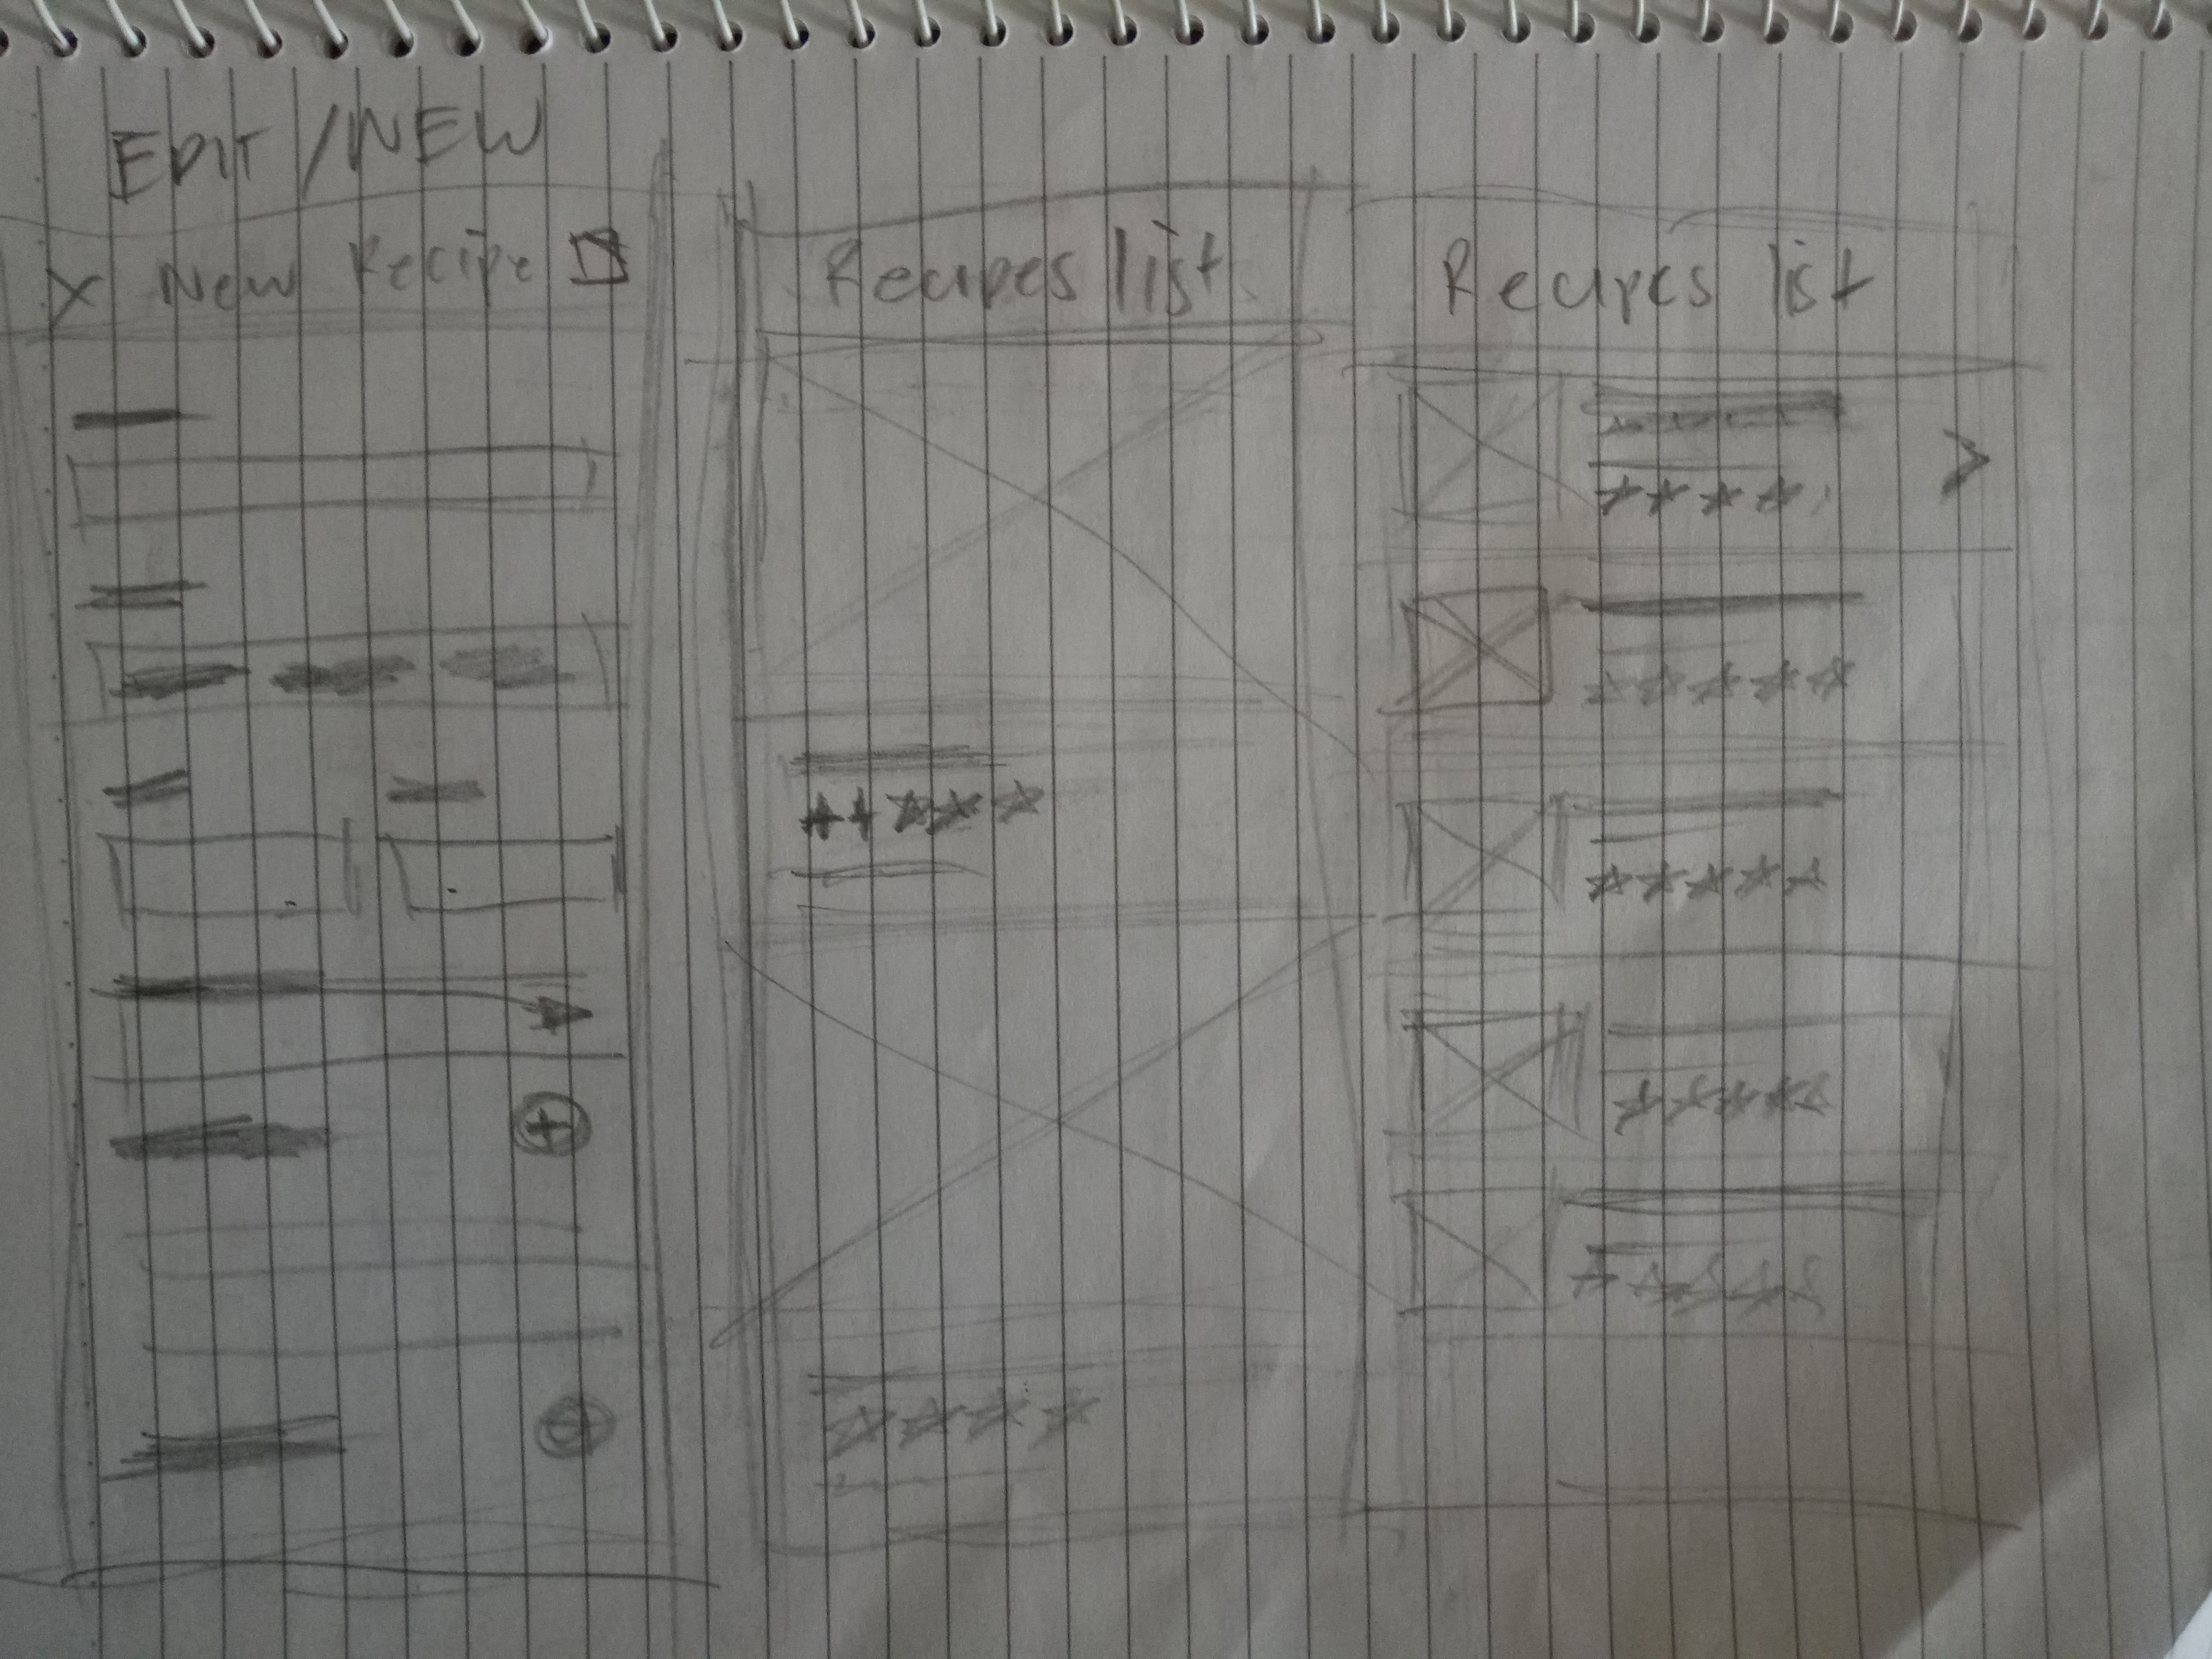 EDIT/NEW
X New Recipe
Recipes list
Recipes list